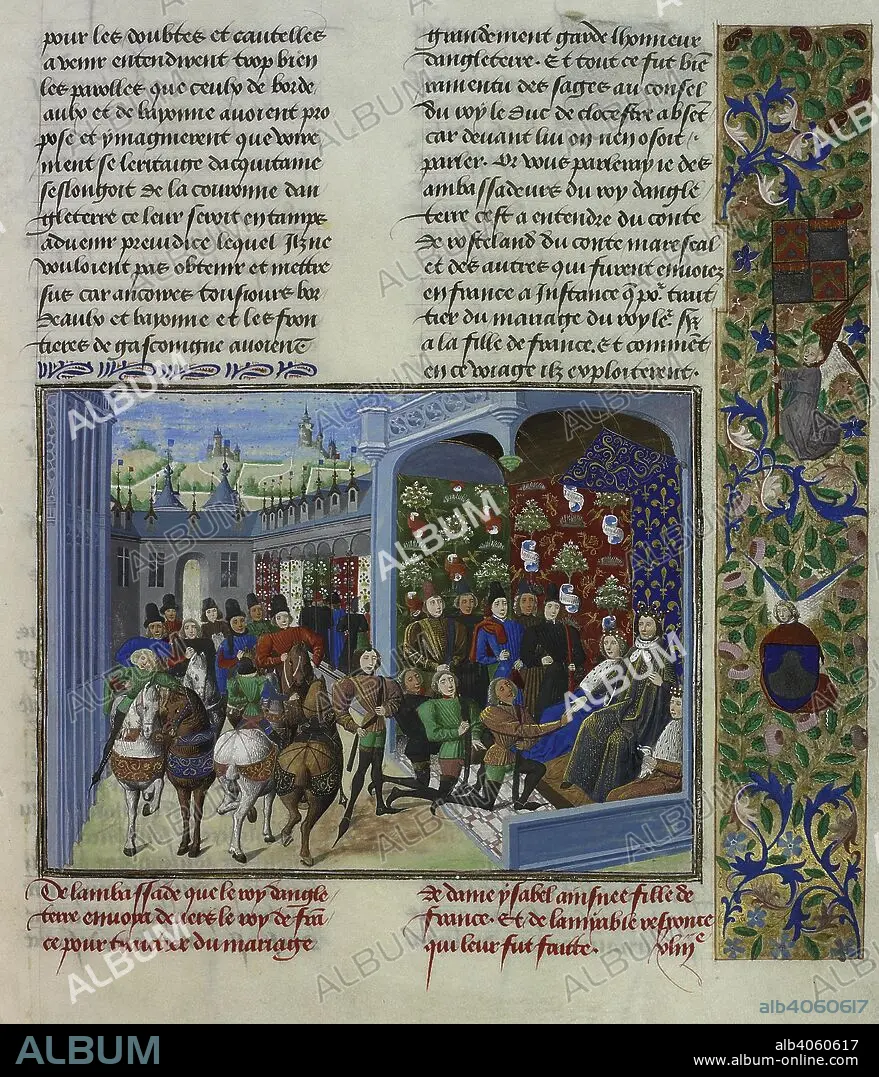 pour les doubtes et cautelles
avenir entendirent trop bien
les parolles que ceulx de borde
aulx et de bayonne auoient pro
pose et ymaginerent que voire
ment se leritaige dacquitaine
seslongoit de la couronne dan
gleterre ce leur seroit en tamps
aduenir preiudice lequel Ilz ne
vouloient pas obtenir et mettre
sus car ancores tousiours bor
deaulx et bayonne et les fron
tieres de gascongne auoient
grandement garde lhonneur
dangleterre. Et tout ce fut bie
ramentu des sages au conseil
du roy le duc de clocestre abset
car deuant lui on nen osoit
parler. Or vous parleray ie des
ambassadeurs du roy dangle
terre cest a entendre du conte
de rosteland du conte marescal
et des autres qui furent enuoiez
en france a Instance q po. trait
tier du mariage du roy le.
a la fille de france. et comment
en ce voiage ilz exploiterent.
De lambassade que le roy dangle
terre enuoya deuers le roy de fra
ce pour traictier du mariage
de dame ysabel aisnee fille de
france. Et de lamiable responce
qui leur fut faitte.
ALBUM
alb4060617
ALBUM
alb4060617
www.album-online.com